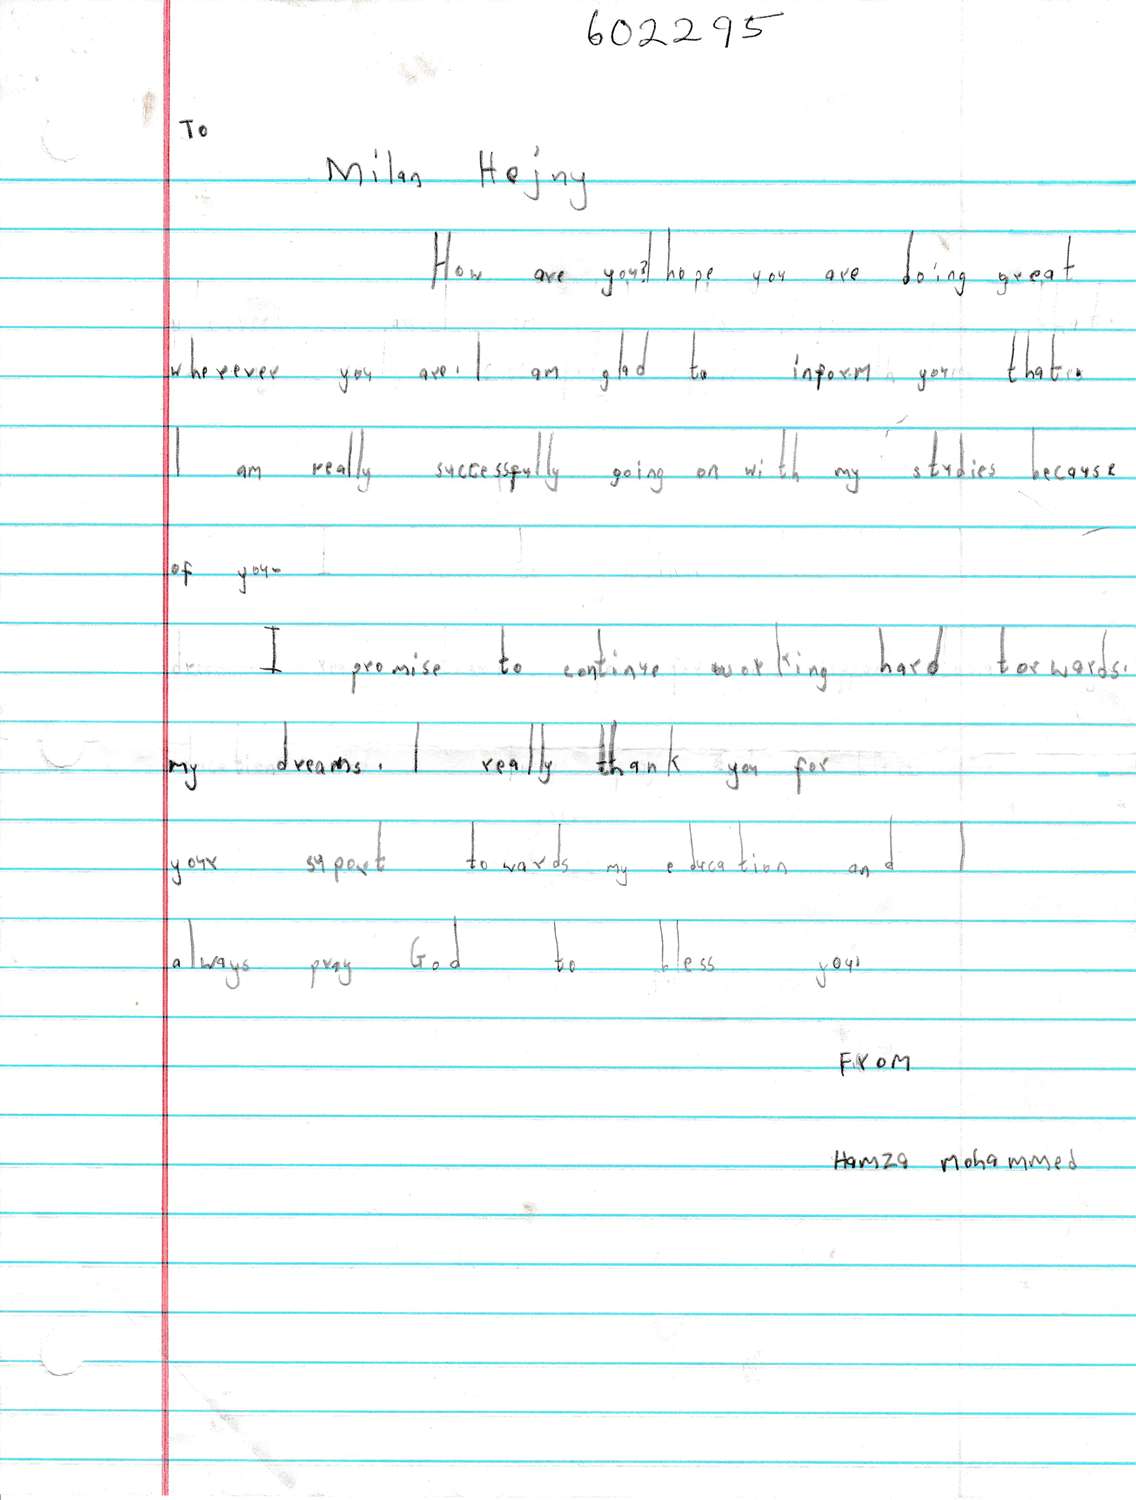 602295
To
Milan Hejny
How are you? I hope you are doing great
wherever you are. I am glad to inform you that.
I am really successfully going on with my studies because
of you.
I promise to continue working hard torwards.
my dreams. I really thank you for
your suport towards my education and I
always pray God to bless you.
From
Hamza Mohammed